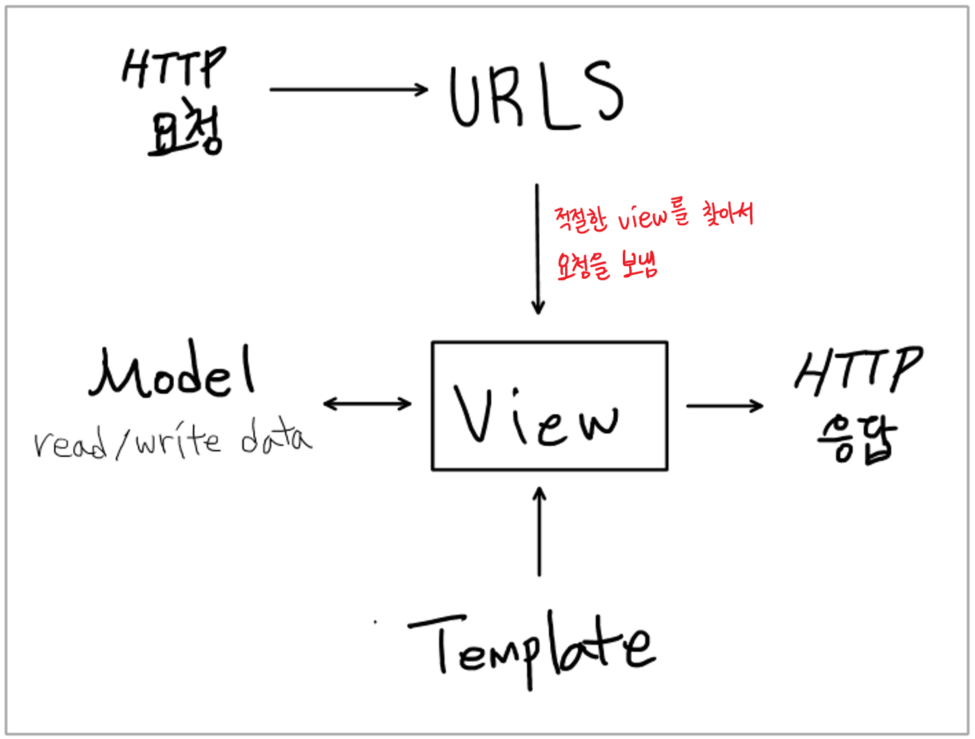 HTTP
요청
URLS
적절한 view를 찾아서
요청을 보냄
Model
read/write data
View
HTTP
응답
Template